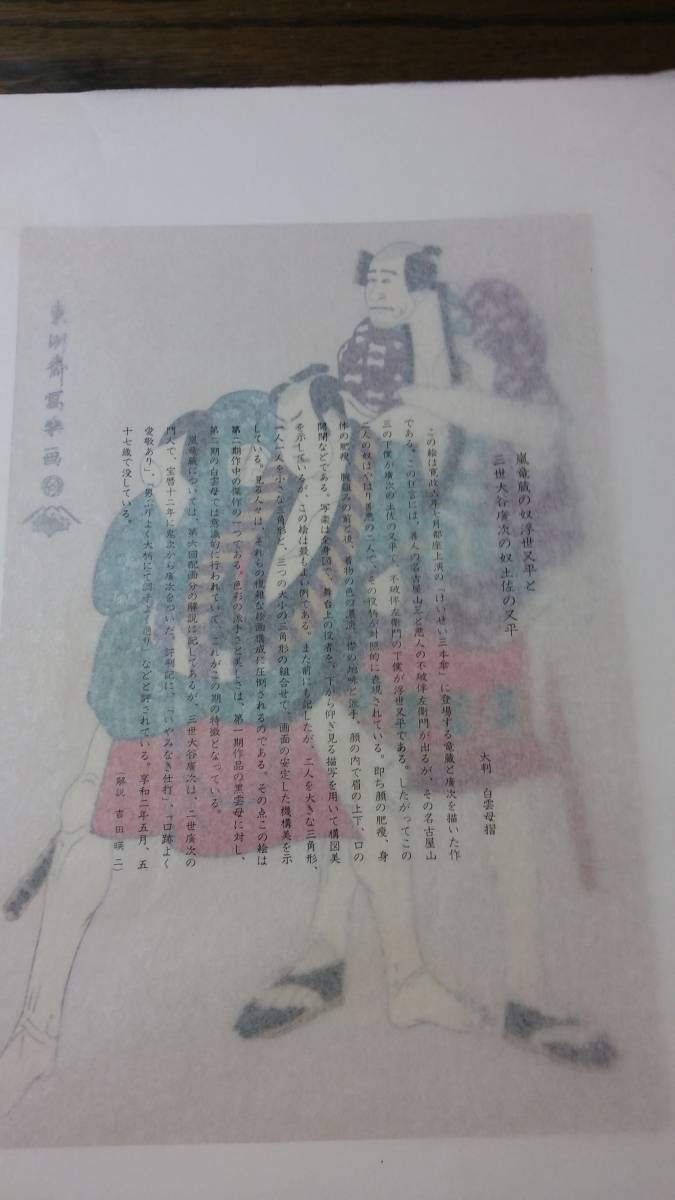 嵐竜蔵の奴浮世又平と
三世大谷廣次の奴土佐の又平
大判　白雲母摺
この絵は寛政六年七月都座上演の「けいせい三本傘」に登場する竜蔵と廣次を描いた作
である。この狂言には、善人の名古屋山三と悪人の不破伴左衛門が出るが、その名古屋山
三の下僕が廣次の土佐の又平で、不破伴左衛門の下僕が浮世又平である。したがってこの
二人の奴はやはり善悪の二人で、その役柄が対照的に表現されている。即ち顔の肥痩、身
体の肥痩、腕組みの前と後、着物の色の濃淡、襟の地味と派手、顔の内で眉の上下、口の
開閉などである。写楽は全身図で、舞台上の役者を、下から仰ぎ見る描写を用いて構図美
を示しているが、この絵は最もよい例である。また前にも記したが、二人を大きな三角形、
一人一人を小さな三角形と、三つの大小の三角形の組合せで、画面の安定した機構美を示
している。見る人々は、それらの複雑な絵画構成に圧倒されるのである。その点この絵は
第二期作中の傑作の一つである。色彩の派手さと美しさは、第一期作品の黒雲母に対し、
第二期の白雲母では意識的に行われていて、これがこの期の特徴となっている。
嵐竜蔵については、第六回配画分の解説に記してあるが、三世大谷廣次は、二世廣次の
門人で、宝暦十二年に鬼次から廣次をついだ。評判記に、「いやみなき仕打」、「口跡よく
愛敬あり」、「男ぶりよく大柄にて調子よく通り」などと評されている。享和二年五月、五
十七歳で没している。
（解説　吉田暎二）
東洲斎寫楽画